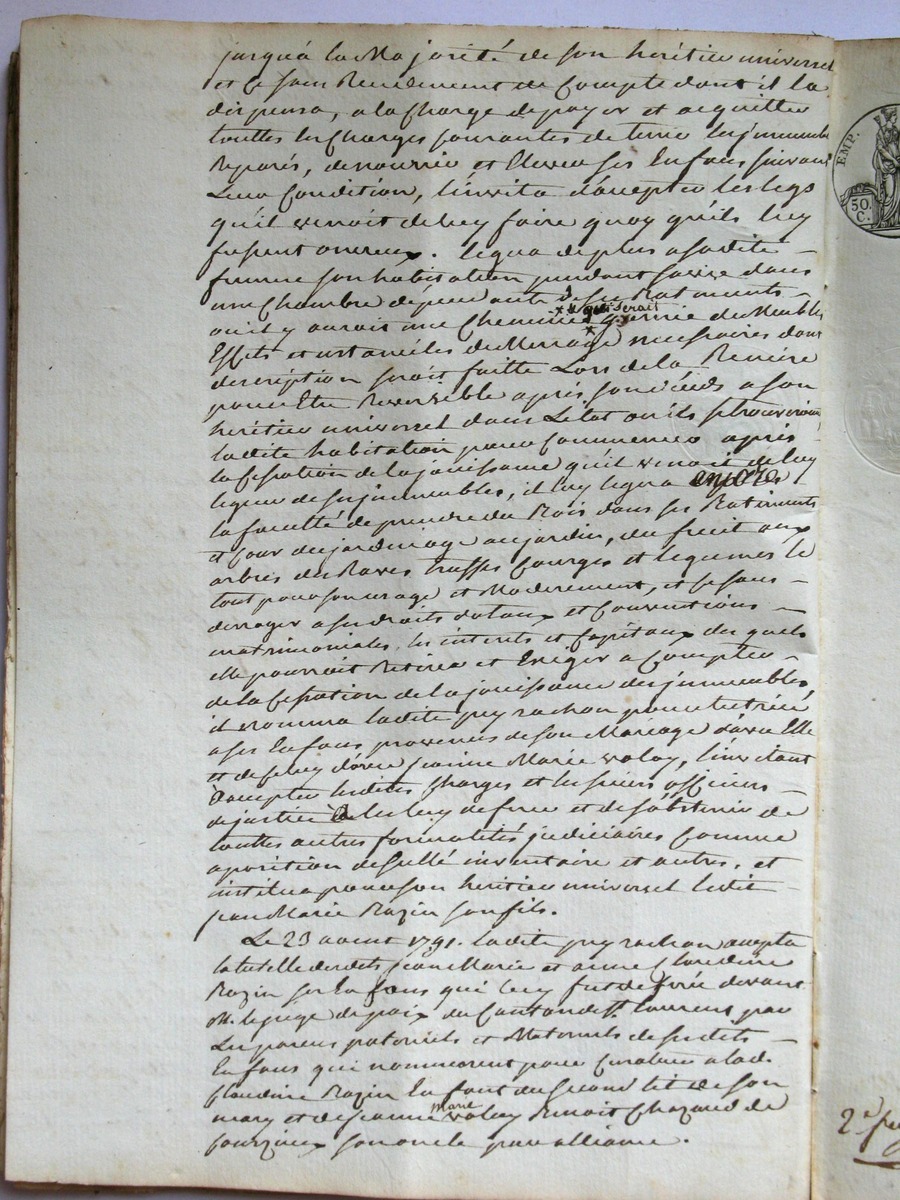 jusqu'à la Majorité de son heritier universel
et ce sans Rendement de Compte dont il la
dispensa, a la Charge de payer et acquitter
toutes les Charges courantes de tenir les jmmeubles
Reparés, de nourrir et Elever ses Enfans suivant
Leur Condition, l'invita d'accepter les legs
qu'il venoit de luy faire quoy qu'ils luy
fussent onereux. legua de plus a sadite
femme son habitation pendant sa vie dans
une Chambre dépendante de ses Batiments
ou il y auroit une Cheminée qui serait garnie de Meubles
Effets et ustanciles de Menage necessaires dont
description seroit faitte Lors de la Remise
pour Etre Reversible après son décès a son
heritier universel dans L'état ou ils se trouveroient
ladite habitation pour Commencer après
la Cessation de la jouissance qu'il venoit de luy
leguer de ses jmmeubles, il luy legua
la faculté de prendre du Bois dans ses Batiments
et Cour du jardinage au jardin, du fruit aux
arbres des Raves truffes Courges et legumes le
tout pour son usage et Moderement, et ce sans
derroger a ses droits dotaux et Conventions
matrimoniales, les interets et Capitaux des quels
elle pourroit Retirer et Exiger a Compter
de la Cessation de la jouissance des jmmeubles
il nomma ladite puy rachon pour tutrice
a ses Enfans provenus de son Mariage d'avec Elle
et de celuy d'avec jeanne Marie valoy, l'invitant
d'accepter lesdites Charges et les sieurs officiers
de justice de les luy deferer et de s'abstenir de
toutes autres formalités judiciaires Comme
aposition de sellé inventaire et autres, et
institua pour son heritier universel ledit
jean Marie Razin son fils.
Le 23 aoust 1791. ladite puy rachon accepta
la tutelle desdits jean Marie et anne Claudine
Razin ses Enfans qui luy fut deferée devant
M. le juge de paix du Canton de St. Laurens par
Les parens paternels et Maternels desdits
Enfans qui nommerent pour Curateur a lad.
Claudine Razin Enfant du second lit de son
mary et de jeanne Marie valoy Benoit Chazaud de
son oncle par alliance.
EMP.
50.
C.
2e